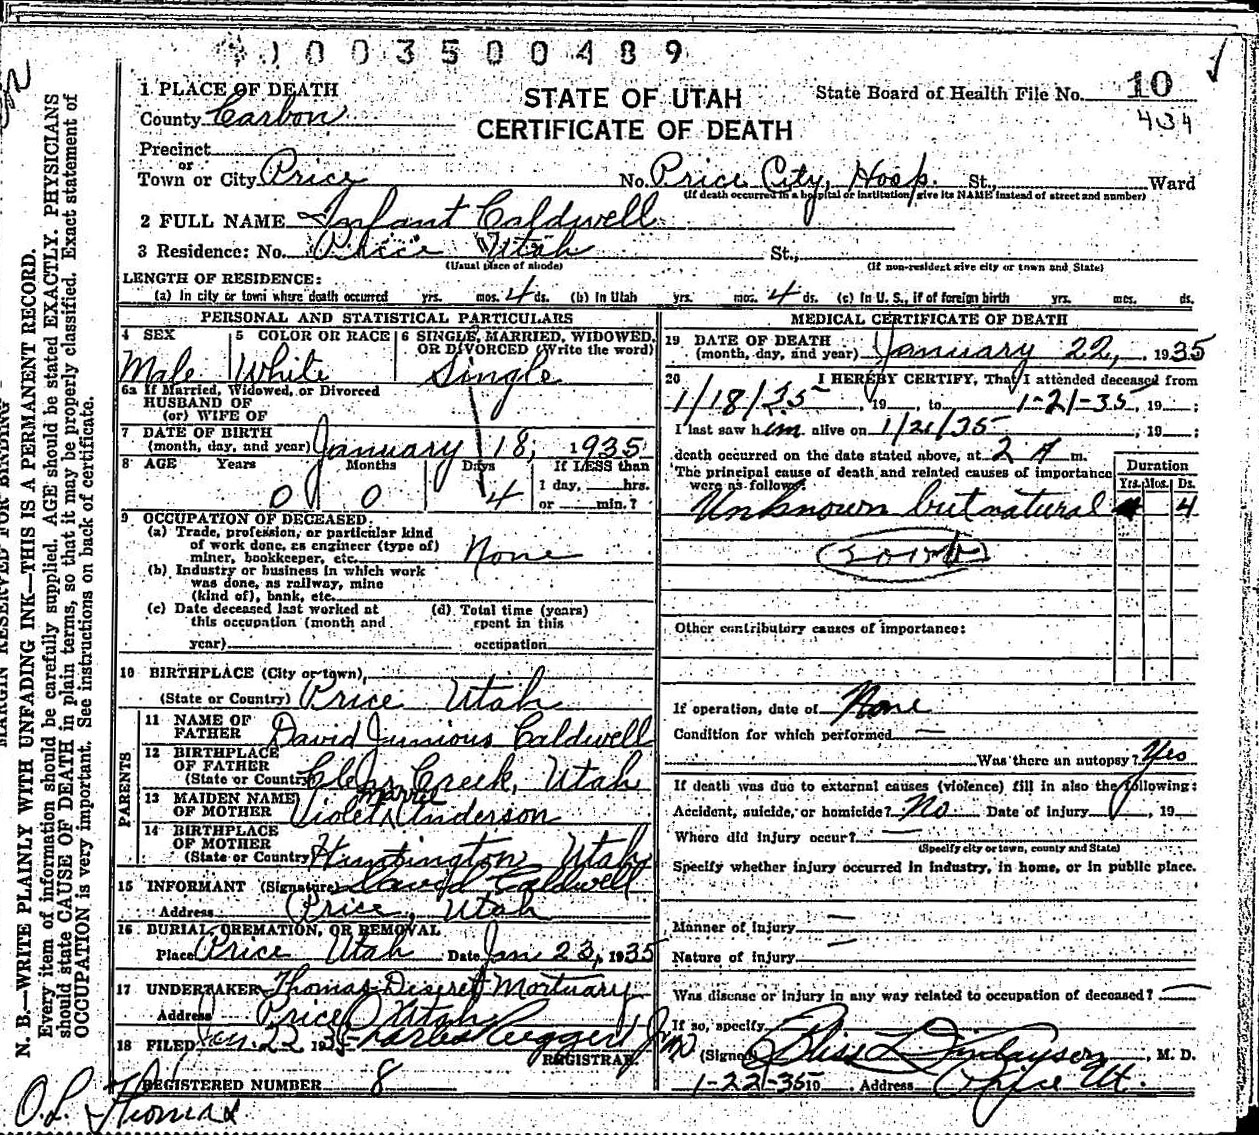 1003500489
1 PLACE OF DEATH
County Carbon
STATE OF UTAH
CERTIFICATE OF DEATH
State Board of Health File No. 10
434
Precinct
or
Town or City Price No. Price City, Hosp. St., Ward
(If death occurred in a hospital or institution, give its NAME instead of street and number)
2 FULL NAME Infant Caldwell
3 Residence: No. Price Utah St.,
(Usual place of abode) (If non-resident give city or town and State)
LENGTH OF RESIDENCE:
(a) In city or town where death occurred yrs. mos. 4 ds. (b) In Utah yrs. mos. 4 ds. (c) In U. S., if of foreign birth yrs. mos. ds.
PERSONAL AND STATISTICAL PARTICULARS
4 SEX 5 COLOR OR RACE 6 SINGLE, MARRIED, WIDOWED,
OR DIVORCED (Write the word)
Male White Single
6a If Married, Widowed, or Divorced
HUSBAND OF
(or) WIFE OF
7 DATE OF BIRTH
(month, day, and year) January 18, 1935
8 AGE Years Months Days If LESS than
1 day, hrs.
0 0 4 or min.?
9 OCCUPATION OF DECEASED.
(a) Trade, profession, or particular kind
of work done, as engineer (type of)
miner, bookkeeper, etc. None
(b) Industry or business in which work
was done, as railway, mine
(kind of), bank, etc.
(c) Date deceased last worked at (d) Total time (years)
this occupation (month and spent in this
year) occupation
10 BIRTHPLACE (City or town),
(State or Country) Price Utah
PARENTS
11 NAME OF
FATHER David Junious Caldwell
12 BIRTHPLACE
OF FATHER
(State or Country) Clear Creek, Utah
13 MAIDEN NAME
OF MOTHER Violet Anderson
14 BIRTHPLACE
OF MOTHER
(State or Country) Huntington Utah
15 INFORMANT (Signature) David Caldwell
Address Price, Utah
16 BURIAL, CREMATION, OR REMOVAL
Place Price Utah Date Jan 23, 1935
17 UNDERTAKER Thomas Diseret Mortuary
Address Price Utah
18 FILED Jan. 22 1935 Charles Ruggeri Jr. MD
REGISTRAR
REGISTERED NUMBER 8
O.L. Thomas
MEDICAL CERTIFICATE OF DEATH
19 DATE OF DEATH
(month, day, and year) January 22, 1935
20 I HEREBY CERTIFY, That I attended deceased from
1/18/35, 19 , to 1-21-35, 19 ;
I last saw him alive on 1/21/35, 19 ;
death occurred on the date stated above, at 2 A m.
The principal cause of death and related causes of importance
were as follows: Duration
Yrs. Mos. Ds.
Unknown but natural 4
Other contributory causes of importance:
If operation, date of None
Condition for which performed —
Was there an autopsy? Yes
If death was due to external causes (violence) fill in also the following:
Accident, suicide, or homicide? No Date of injury , 19
Where did injury occur? —
(Specify city or town, county and State)
Specify whether injury occurred in industry, in home, or in public place.
Manner of injury —
Nature of injury —
Was disease or injury in any way related to occupation of deceased? —
If so, specify
(Signed) Bliss L Finlayson, M. D.
1-22-35 19 , Address Price Ut.
MARGIN RESERVED FOR BINDING
N. B.—WRITE PLAINLY WITH UNFADING INK—THIS IS A PERMANENT RECORD.
Every item of information should be carefully supplied. AGE should be stated EXACTLY. PHYSICIANS
should state CAUSE OF DEATH in plain terms, so that it may be properly classified. Exact statement of
OCCUPATION is very important. See instructions on back of certificate.